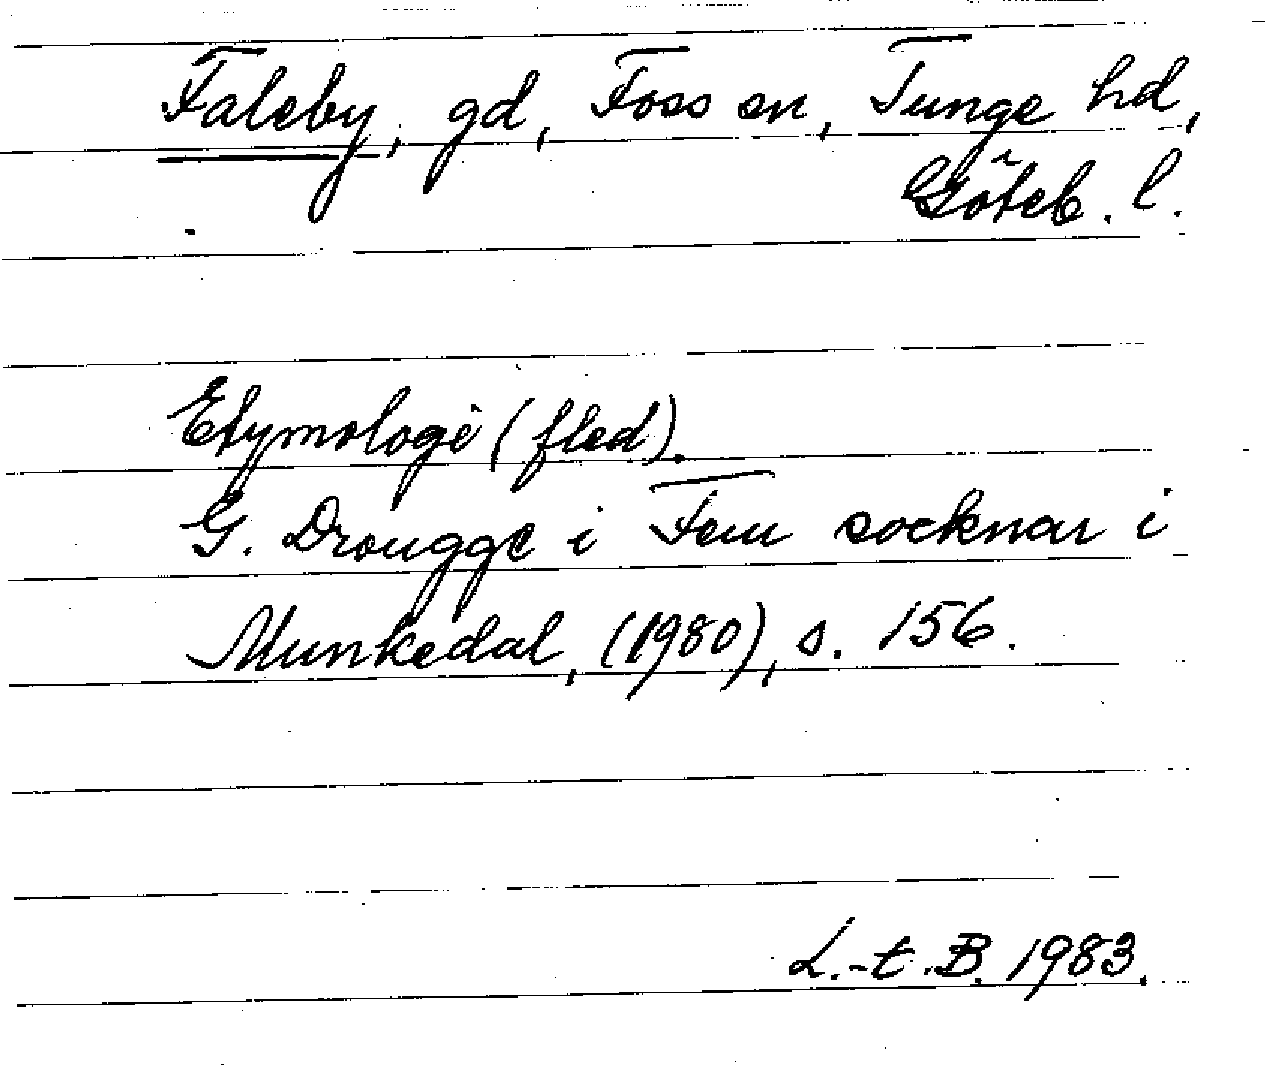 Faleby, gd, Foss sn, Tunge hd,
Göteb. l.
Etymologi (fled).
G. Drougge i Fem socknar i
Munkedal, (1980), s. 156.
L.-t. B. 1983.